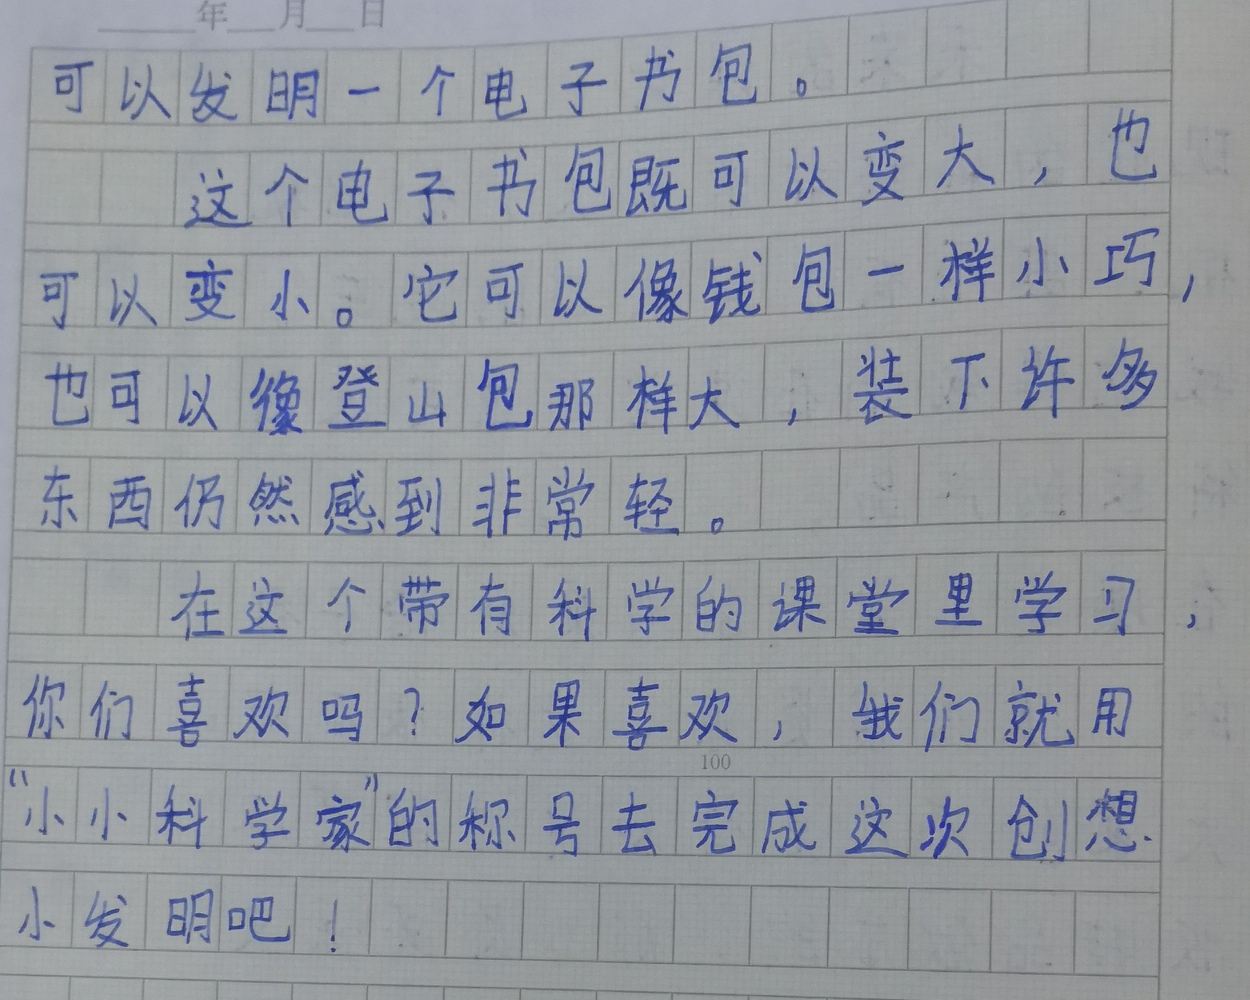 年 月 日
可以发明一个电子书包。
这个电子书包既可以变大，也
可以变小。它可以像钱包一样小巧，
也可以像登山包那样大，装下许多
东西仍然感到非常轻。
在这个带有科学的课堂里学习，
你们喜欢吗？如果喜欢，我们就用
100
“小小科学家”的称号去完成这次创想
小发明吧！